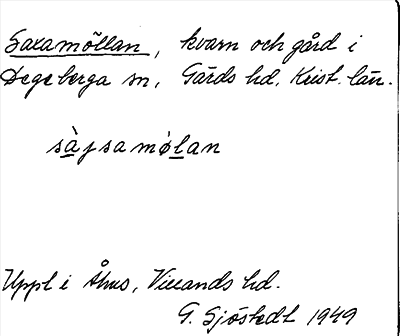 Saxamöllan, kvarn och gård i
Degeberga sn, Gärds hd, Krist. län.
sàjsamølan
Uppt i Åhus, Villands hd.
G. Sjöstedt 1949